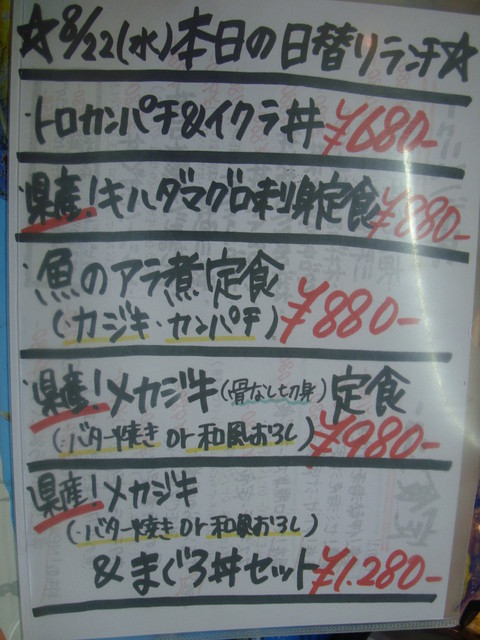 ☆8/22(水)本日の日替りランチ☆
トロカンパチ&イクラ丼 ¥680-
県産!キハダマグロ刺身定食 ¥880-
魚のアラ煮定食
(・カジキ・カンパチ) ¥880-
県産!メカジキ(骨なし切身)定食
(・バター焼き or 和風おろし) ¥980-
県産!メカジキ
(・バター焼き or 和風おろし)
&まぐろ丼セット ¥1.280-